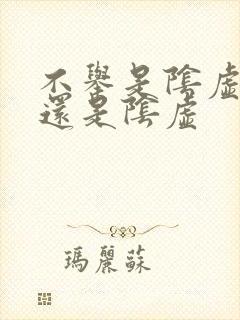 不舉是陰虛
還是陰虛
瑪麗蘇